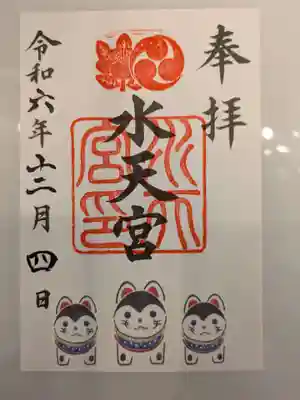 奉拝
水天宮
令和六年十二月四日
水天宮印